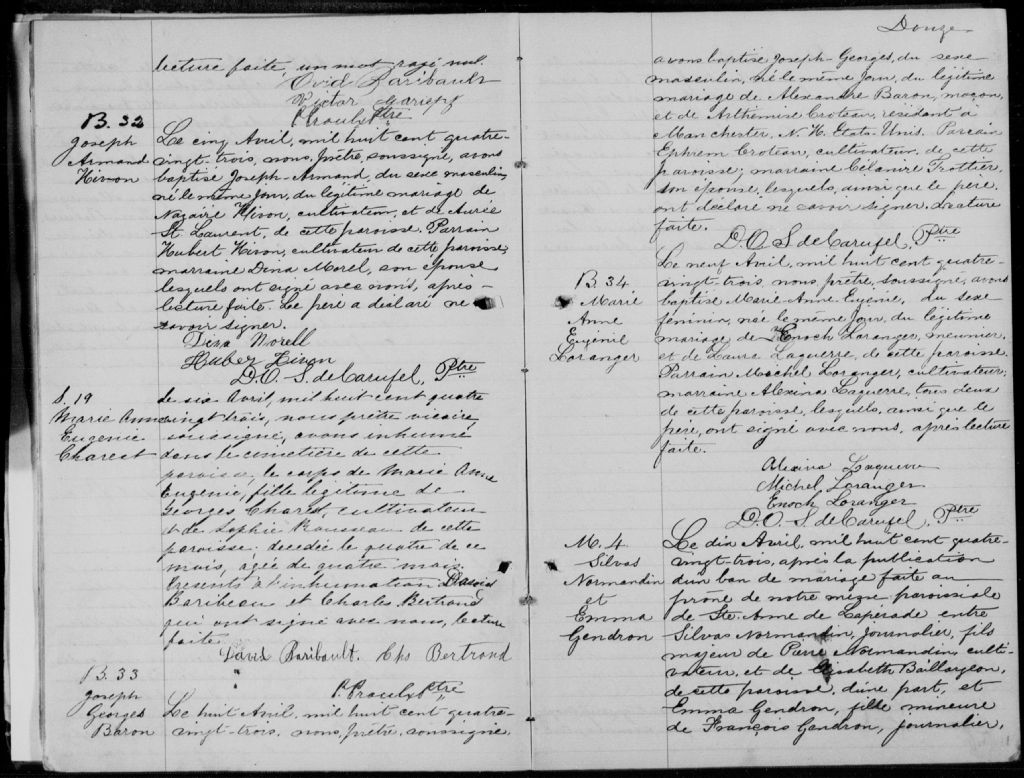 lecture faite, un mot rayé nul.
Ovid Baribault
Victor
P. Proulx Ptre
B. 32
Joseph
Armand
Hivon
Le cinq Avril, mil huit cent quatre-
vingt-trois, nous, prêtre, soussigné, avons
baptisé Joseph-Armand, du sexe masculin,
né le même jour, du légitime mariage de
Nazaire Hivon, cultivateur, et de Aurée
St Laurent, de cette paroisse. Parrain
Hubert Hivon, cultivateur de cette paroisse,
marraine Dina Morel, son épouse
lesquels ont signé avec nous, après
lecture faite. Le père a déclaré ne
savoir signer.
Dina Morell
Huber Hivon
D. O. S. de Carufel, Ptre
S. 19
Marie Anne
Eugenie
Charest
Le six Avril, mil huit cent quatre
vingt trois, nous prêtre vicaire
soussigné, avons inhumé
dans le cimetière de cette
paroisse, le corps de Marie Anne
Eugenie, fille légitime de
Georges Charest, cultivateur
& de Sophie Rousseau de cette
paroisse; décédée le quatre de ce
mois, agée de quatre mois.
Présents à l'inhumation: David
Baribeau et Charles Bertrand
qui ont signé avec nous, lecture
faite.
David Baribault. Chs Bertrand
P. Proulx Ptre
B. 33
Joseph
Georges
Baron
Le huit Avril, mil huit cent quatre-
vingt-trois, nous, prêtre, soussigné,
Douze
avons baptisé Joseph Georges, du sexe
masculin, né le même jour, du légitime
mariage de Alexandre Baron, maçon,
et de Arthémise Croteau, résidant à
Manchester, N. H. Etats-Unis. Parrain
Ephrem Croteau, cultivateur, de cette
paroisse; marraine Célanire Trottier,
son épouse, lesquels, ainsi que le père,
ont déclaré ne savoir signer. Lecture
faite.
D. O. S. de Carufel, Ptre
B. 34
Marie
Anne
Eugénie
Loranger
Le neuf Avril, mil huit cent quatre-
vingt-trois, nous, prêtre, soussigné, avons
baptisé Marie-Anne Eugénie, du sexe
féminin, née le même jour, du légitime
mariage de Enoch Loranger, meunier,
et de Laura Laguerre, de cette paroisse.
Parrain Michel Loranger, cultivateur;
marraine Alexina Laguerre, tous deux
de cette paroisse, lesquels, ainsi que le
père, ont signé avec nous, après lecture
faite.
Alexina Laguerre
Michel Loranger
Enoch Loranger
D. O. S. de Carufel, Ptre
M. 4
Silvas
Normandin
et
Emma
Gendron
Le dix Avril, mil huit cent quatre-
vingt-trois, après la publication
d'un ban de mariage faite au
prône de notre messe paroissiale
de Ste Anne de Lapérade entre
Silvas Normandin, journalier, fils
majeur de Pierre Normandin, culti-
vateur, et de Elisabeth Baillargeon,
de cette paroisse, d'une part, et
Emma Gendron, fille mineure
de François Gendron, journalier,